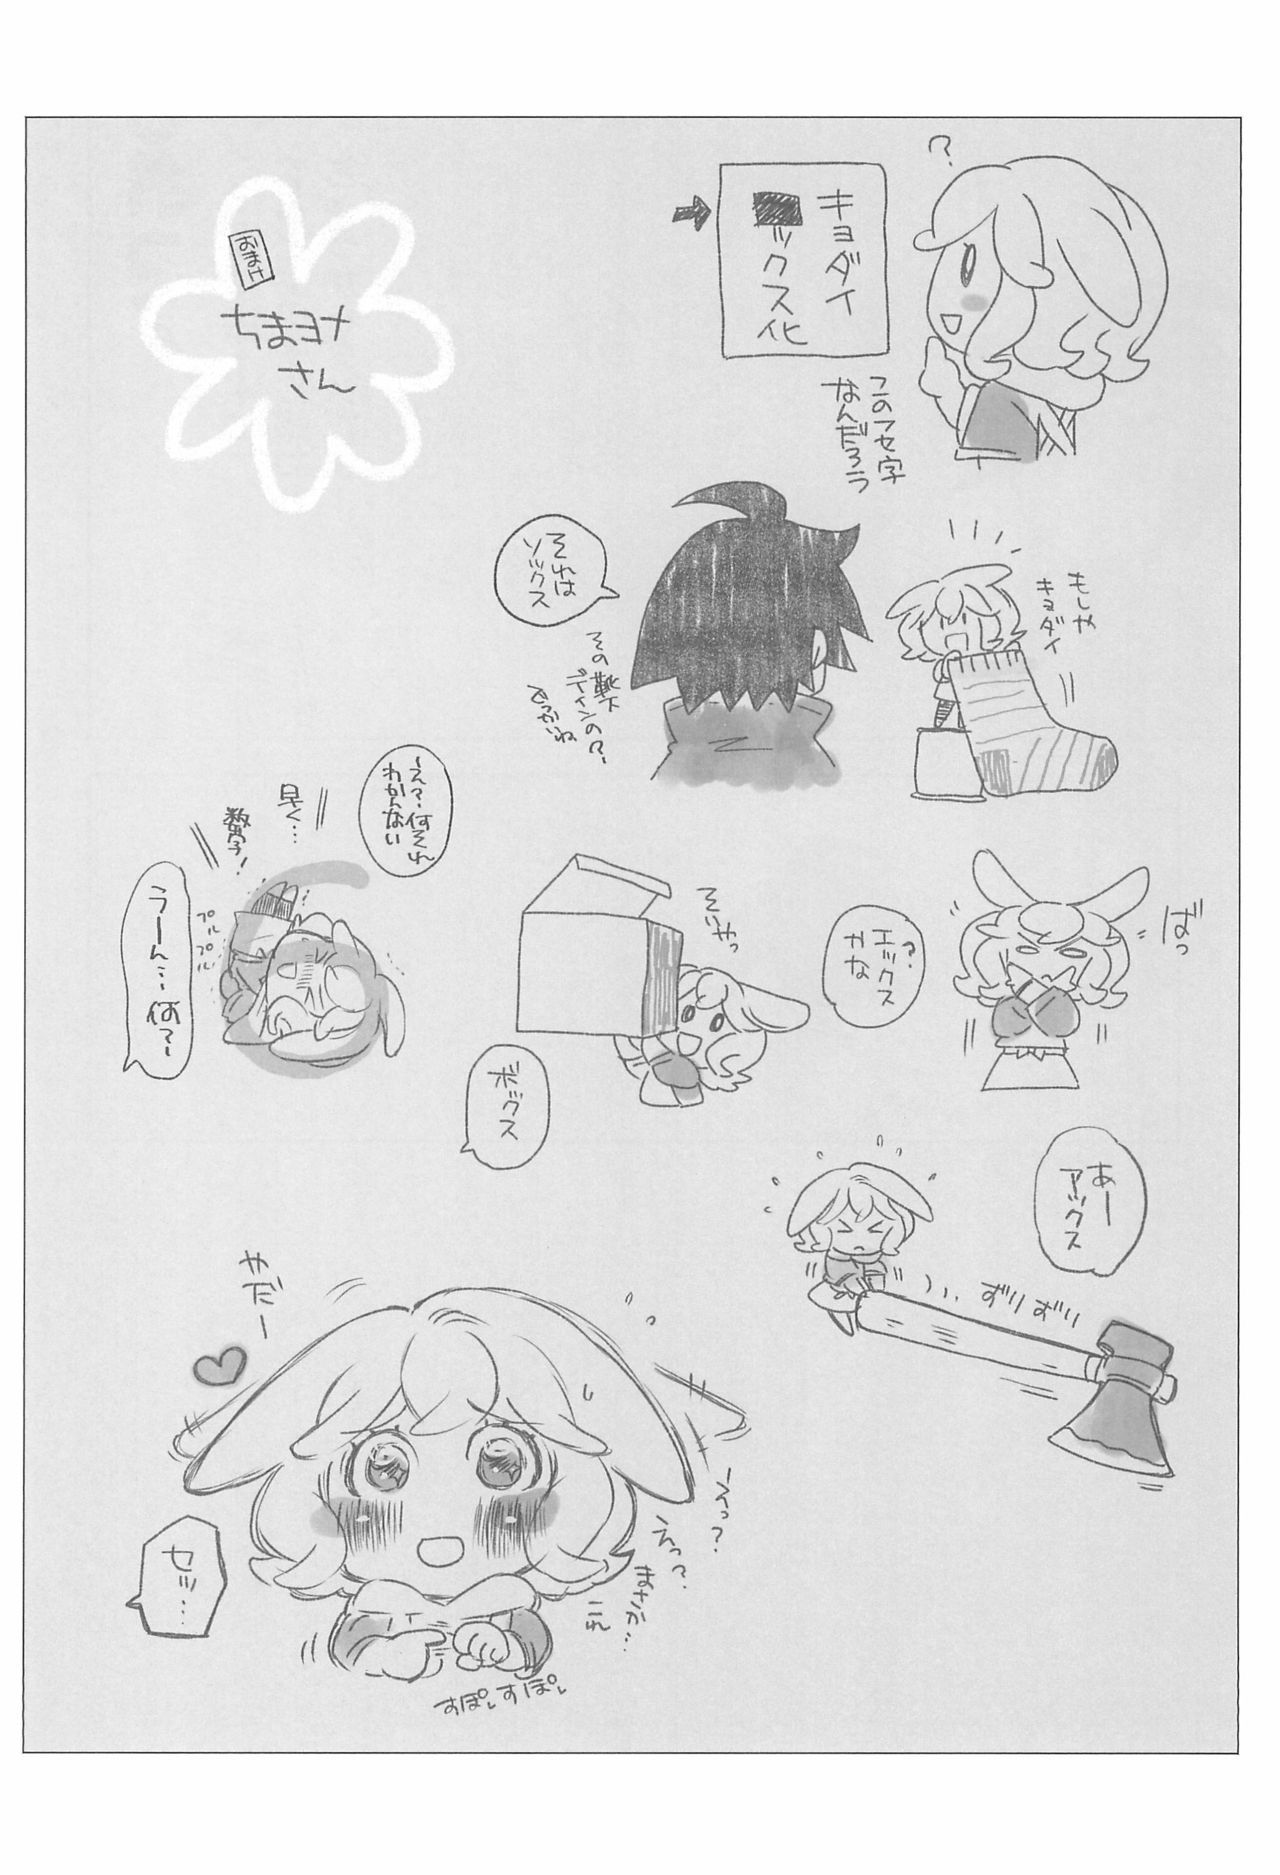 おまけ
ちまヨメ
さん
?
キョダイ
ックス化
この伏せ字
なんだろう
もしや
キョダイ
それは
ソックス
その靴下
でっかいね
ばっ
エックス
?
かな
そいやっ
ボックス
〜え?何それ
わかんない
早く…
数字!
プルプル
うーん…何?〜
あー
アックス
ずりずり
やだー
〜えっ?
えっ?
まさか…
これ
すぽすぽ
セッ…